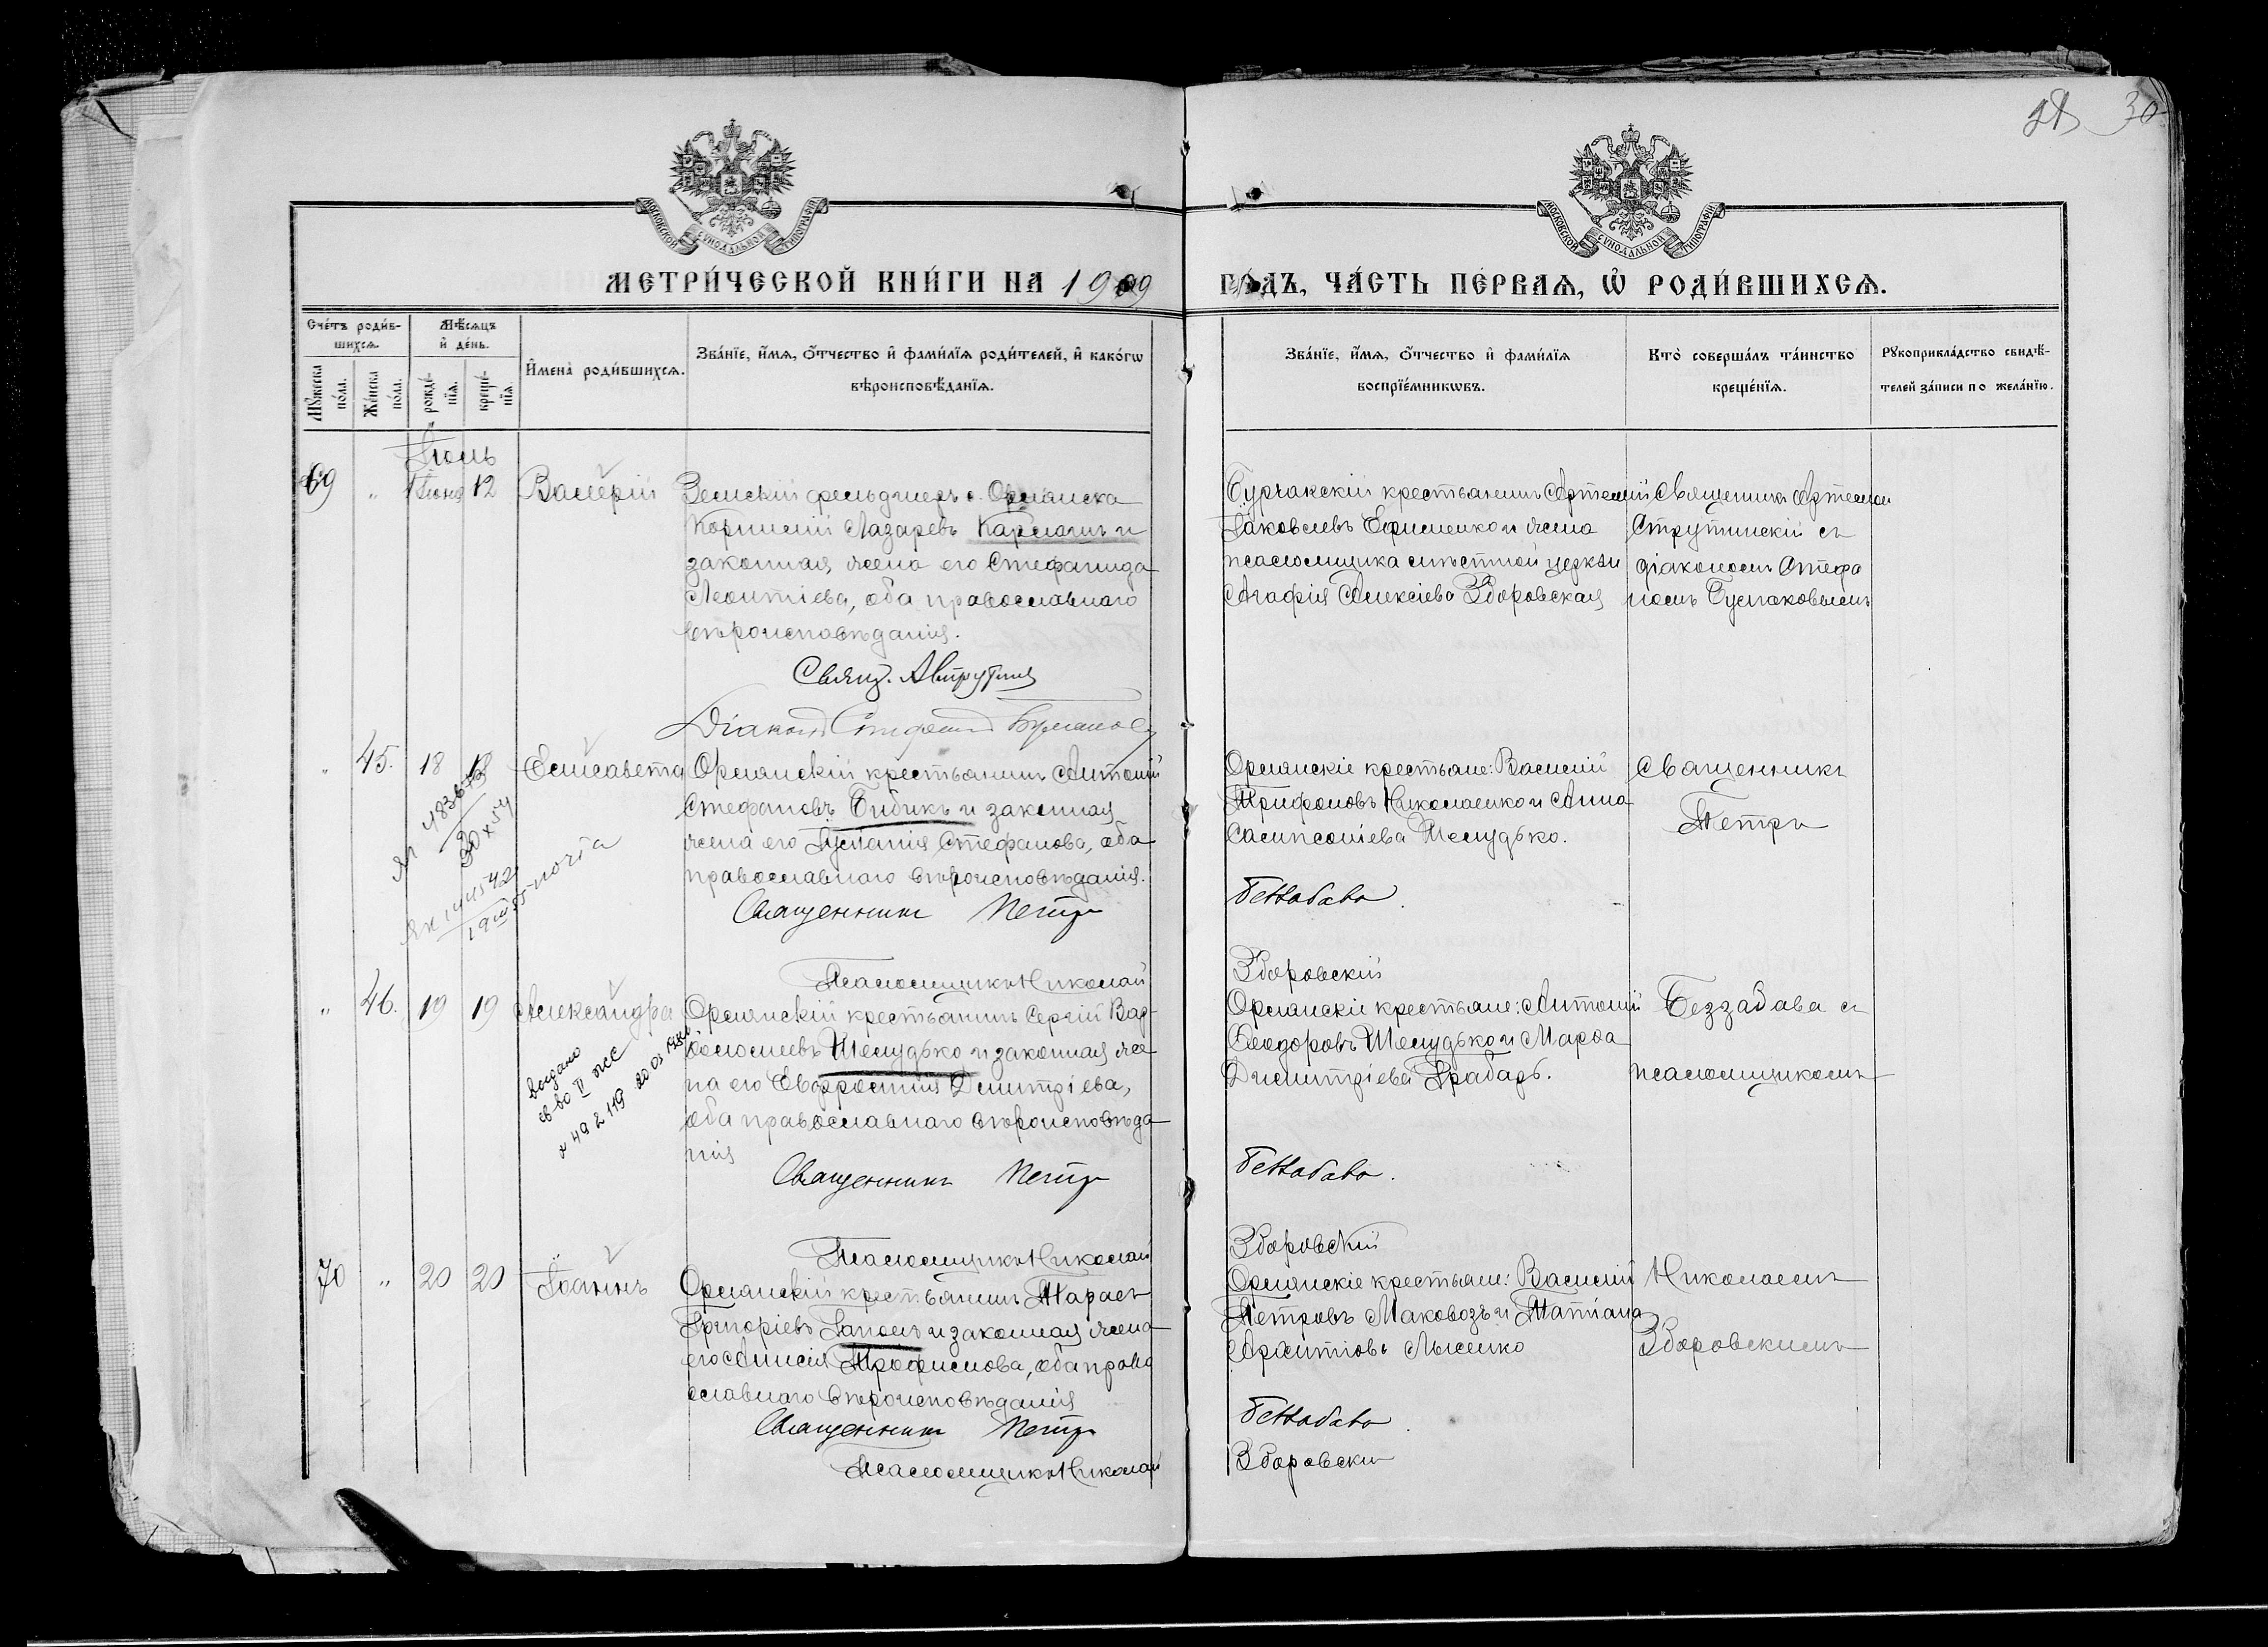 30
МОСКОВСКОЙ СѴНОДАЛЬНОЙ ТИПОГРАФІИ
МОСКОВСКОЙ СѴНОДАЛЬНОЙ ТИПОГРАФІИ
МЕТРИ́ЧЕСКОЙ КНИ́ГИ НА 1909
ГОДЪ, ЧА́СТЬ ПЕ́РВАѦ, Ѡ҆ РОДИ́ВШИХСѦ.
Сче́тъ роди́в-
шихсѧ.
Мѣ́сѧцъ
и҆ де́нь.
Мꙋ́жеска
по́ла.
Же́нска
по́ла.
рожде́-
нїѧ.
креще́-
нїѧ.
И҆мена̀ роди́вшихсѧ.
Зва́нїе, и҆́мѧ, ѻ҆́тчество и҆ фами́лїѧ роди́телей, и҆ како́гѡ
вѣроисповѣ́данїѧ.
Зва́нїе, и҆́мѧ, ѻ҆́тчество и҆ фами́лїѧ
воспрїе́мникѡвъ.
Кто̀ соверша́лъ та́инство
креще́нїѧ.
Рꙋкоприкла́дство свидѣ́-
телей за́писи по жела́нїю.
Іюль
69 " Іюня 12 Валерій
Земскій фельдшеръ с. Орлянска
Корнилій Лазаревъ Карлашъ и
законная жена его Стефанида
Леонтіева, оба православнаго
вѣроисповѣданія.
Свящ. А Струтин
Діаконъ Стефанъ Буслаков
Бурчакскій крестьянинъ Артемій
Іаковлевъ Ефименко и жена
псаломщика мѣстной церкви
Агафія Алексіева Здоровская
Священникъ Артемій
Струтинскій съ
діакономъ Стефа
номъ Буслаковымъ
" 45. 18 18 Елисавета
Орлянскій крестьянинъ Антоній
Стефановъ Бибикъ и законная
жена его Іуліанія Стефанова, оба
православнаго вѣроисповѣданія.
Священникъ Петръ
Псаломщикъ Николай
Орлянскіе крестьяне: Василій
Трифоновъ Николаенко и Анна
Сампсоніева Шелудько.
Беззабава.
Здоровскій
Священникъ
Петръ
" 46. 19 19 Александра
выдано
св во II
20 03
Орлянскій крестьянинъ Сергій Вар-
ѳоломеевъ Шелудько и законная же-
на его Евфросинія Димитріева,
оба православнаго вѣроисповѣда-
нія
Священникъ Петръ
Псаломщикъ Николай
Орлянскіе крестьяне: Антоній
Ѳеодоровъ Шелудько и Марѳа
Димитріева Грабарь.
Беззабава.
Здоровскій
Беззабава съ
псаломщикомъ
70 " 20 20 Іоаннъ
Орлянскій крестьянинъ Тарасъ
Григоріевъ Гапонъ и законная жена
его Анисія Трофимова, оба право
славнаго вѣроисповѣданія
Священникъ Петръ
Псаломщикъ Николай
Орлянскіе крестьяне: Василій
Петровъ Маковозъ и Татіана
Лысенко
Беззабава.
Здоровски
Николаемъ
Здоровскимъ